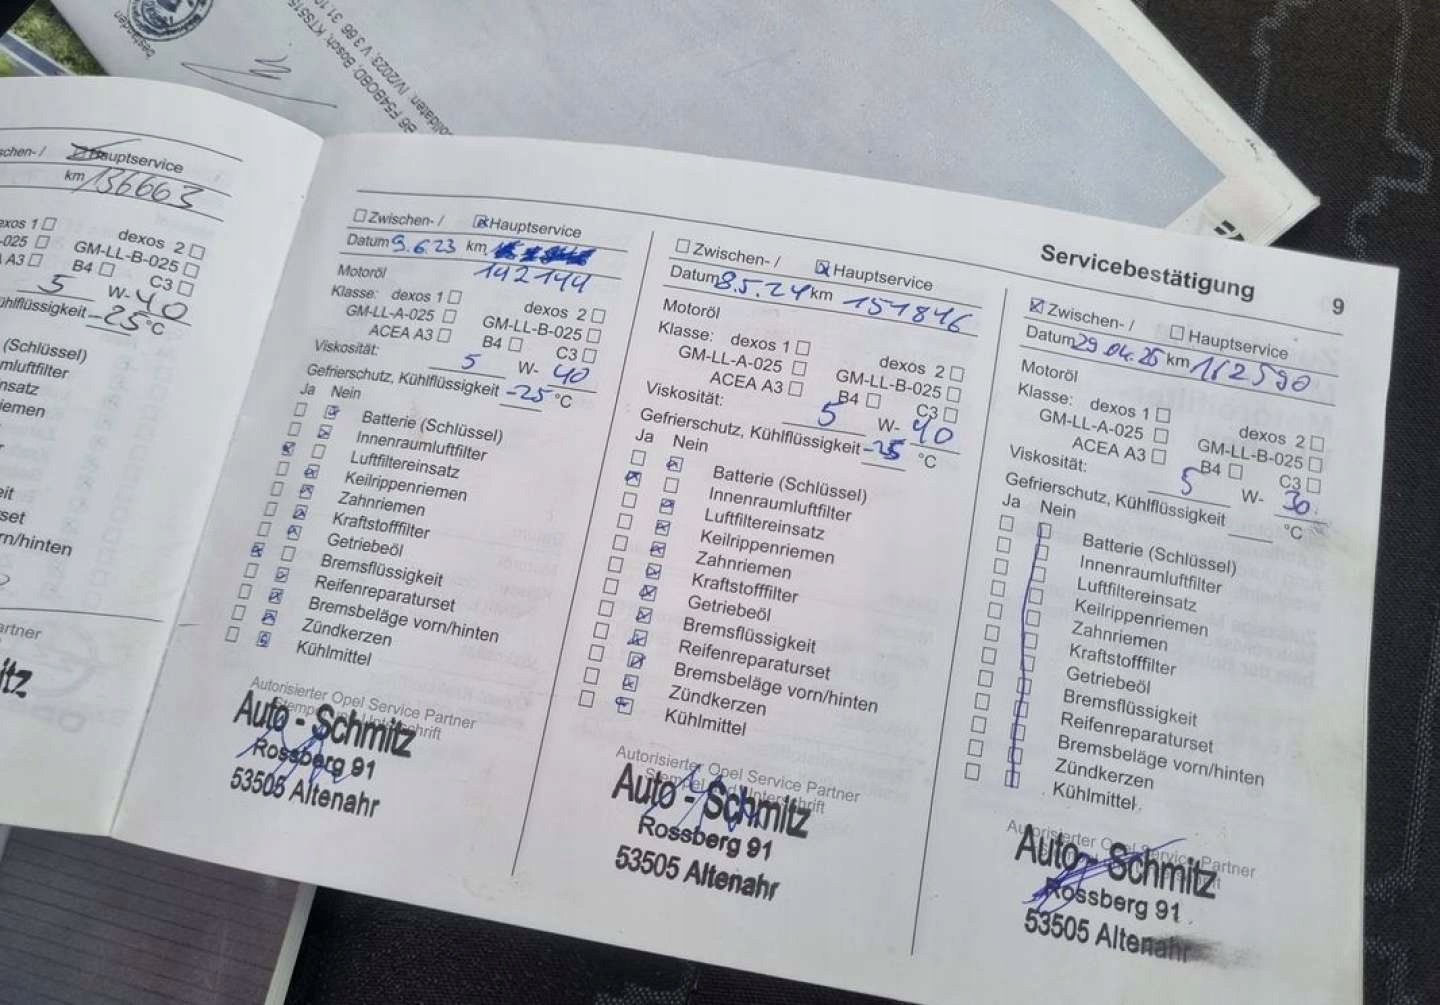 bestanden
B6 F54BOBD, Bosch, KTS515
IV/2023, V 3.66 31.10
schen- / Hauptservice
km 136663
exos 1 dexos 2
-025 GM-LL-B-025
A3 B4 C3
5 W- 40
ühlflüssigkeit -25 °C
(Schlüssel)
mluftfilter
nsatz
iemen
eit
rset
rn/hinten
artner
itz
Zwischen- / Hauptservice
Datum 9.6.23 km
142144
Motoröl
Klasse: dexos 1 dexos 2
GM-LL-A-025 GM-LL-B-025
ACEA A3 B4 C3
Viskosität: 5 W- 40
Gefrierschutz, Kühlflüssigkeit -25 °C
Ja Nein
Batterie (Schlüssel)
Innenraumluftfilter
Luftfiltereinsatz
Keilrippenriemen
Zahnriemen
Kraftstofffilter
Getriebeöl
Bremsflüssigkeit
Reifenreparaturset
Bremsbeläge vorn/hinten
Zündkerzen
Kühlmittel
Autorisierter Opel Service Partner
Stempel und Unterschrift
Auto - Schmitz
Rossberg 91
53505 Altenahr
Zwischen- / Hauptservice
Datum 8.5.24 km 151846
Motoröl
Klasse: dexos 1 dexos 2
GM-LL-A-025 GM-LL-B-025
ACEA A3 B4 C3
Viskosität: 5 W- 40
Gefrierschutz, Kühlflüssigkeit -25 °C
Ja Nein
Batterie (Schlüssel)
Innenraumluftfilter
Luftfiltereinsatz
Keilrippenriemen
Zahnriemen
Kraftstofffilter
Getriebeöl
Bremsflüssigkeit
Reifenreparaturset
Bremsbeläge vorn/hinten
Zündkerzen
Kühlmittel
Autorisierter Opel Service Partner
Stempel und Unterschrift
Auto - Schmitz
Rossberg 91
53505 Altenahr
Servicebestätigung 9
Zwischen- / Hauptservice
Datum 29.04.25 km 162590
Motoröl
Klasse: dexos 1 dexos 2
GM-LL-A-025 GM-LL-B-025
ACEA A3 B4 C3
Viskosität: 5 W- 30
Gefrierschutz, Kühlflüssigkeit °C
Ja Nein
Batterie (Schlüssel)
Innenraumluftfilter
Luftfiltereinsatz
Keilrippenriemen
Zahnriemen
Kraftstofffilter
Getriebeöl
Bremsflüssigkeit
Reifenreparaturset
Bremsbeläge vorn/hinten
Zündkerzen
Kühlmittel
Autorisierter Opel Service Partner
Auto - Schmitz
Rossberg 91
53505 Altenahr